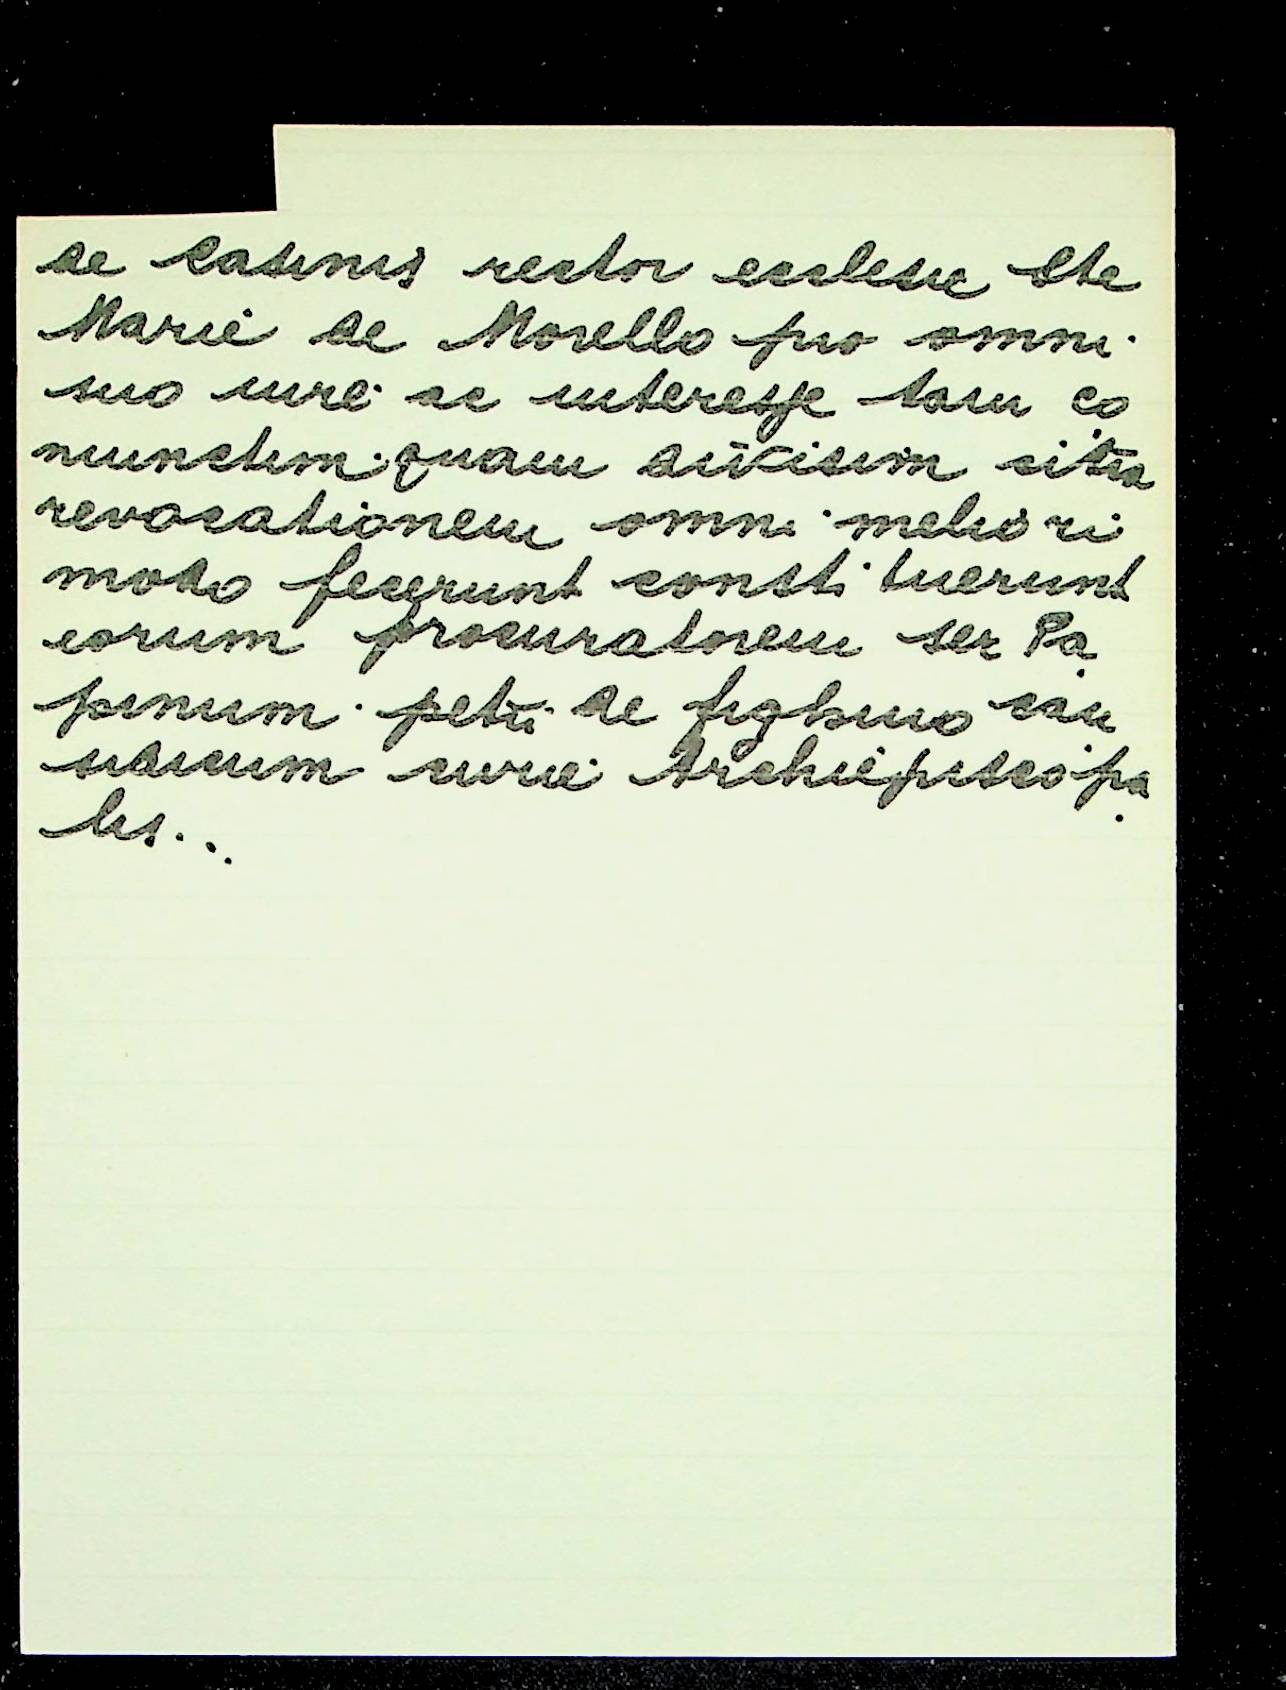 de Casinis rector ecclesie Ste
Marie de Morello pro omni
suo iure ac interesse tam co
niunctim quam divisim citra
revocationem omni meliori
modo fecerunt constituerunt
eorum procuratorem ser Pa
pinum petri de fighino cau
sidicum curie Archiepiscopa
lis...